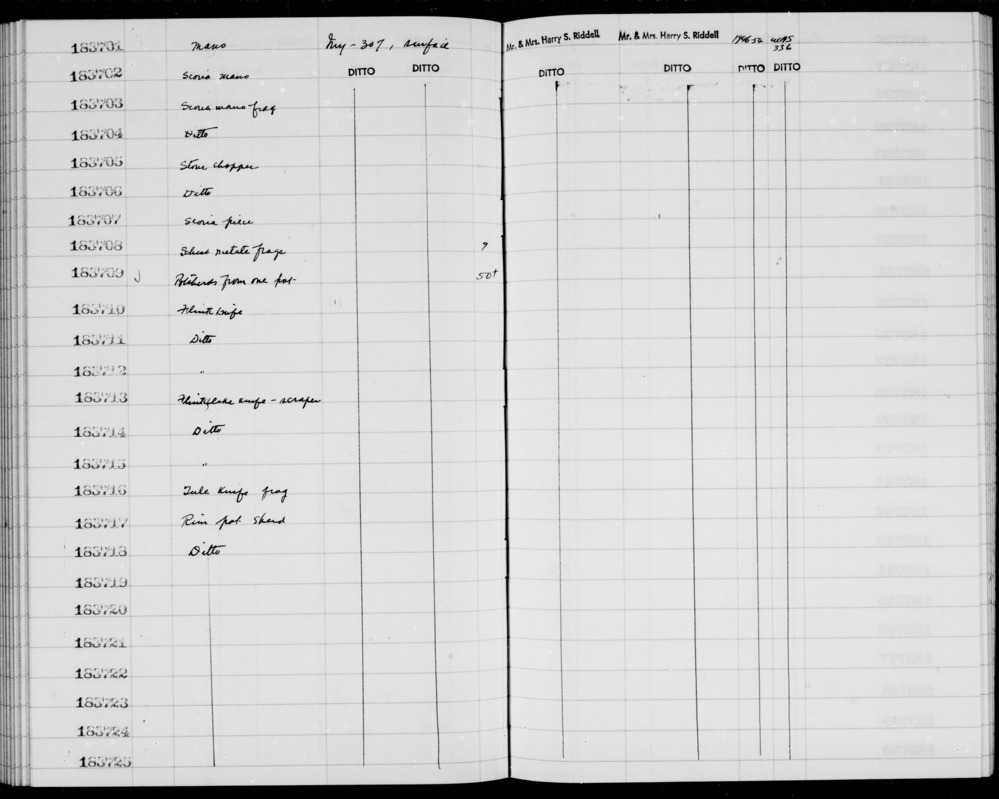 183701 Mano Iny-307, surface Mr. & Mrs. Harry S. Riddell Mr. & Mrs. Harry S. Riddell 1946-52 UCAS 336
183702 Scoria mano DITTO DITTO DITTO DITTO DITTO DITTO
183703 Scoria mano frag
183704 Ditto
183705 Stone chopper
183706 Ditto
183707 Scoria piece
183708 Schist metate frags 9
183709 Potsherds from one pot 50+
183710 Flint knife
183711 Ditto
183712 "
183713 Flint flake knife - scraper
183714 Ditto
183715 "
183716 knife frag
183717 Rim pot sherd
183718 Ditto
183719
183720
183721
183722
183723
183724
183725